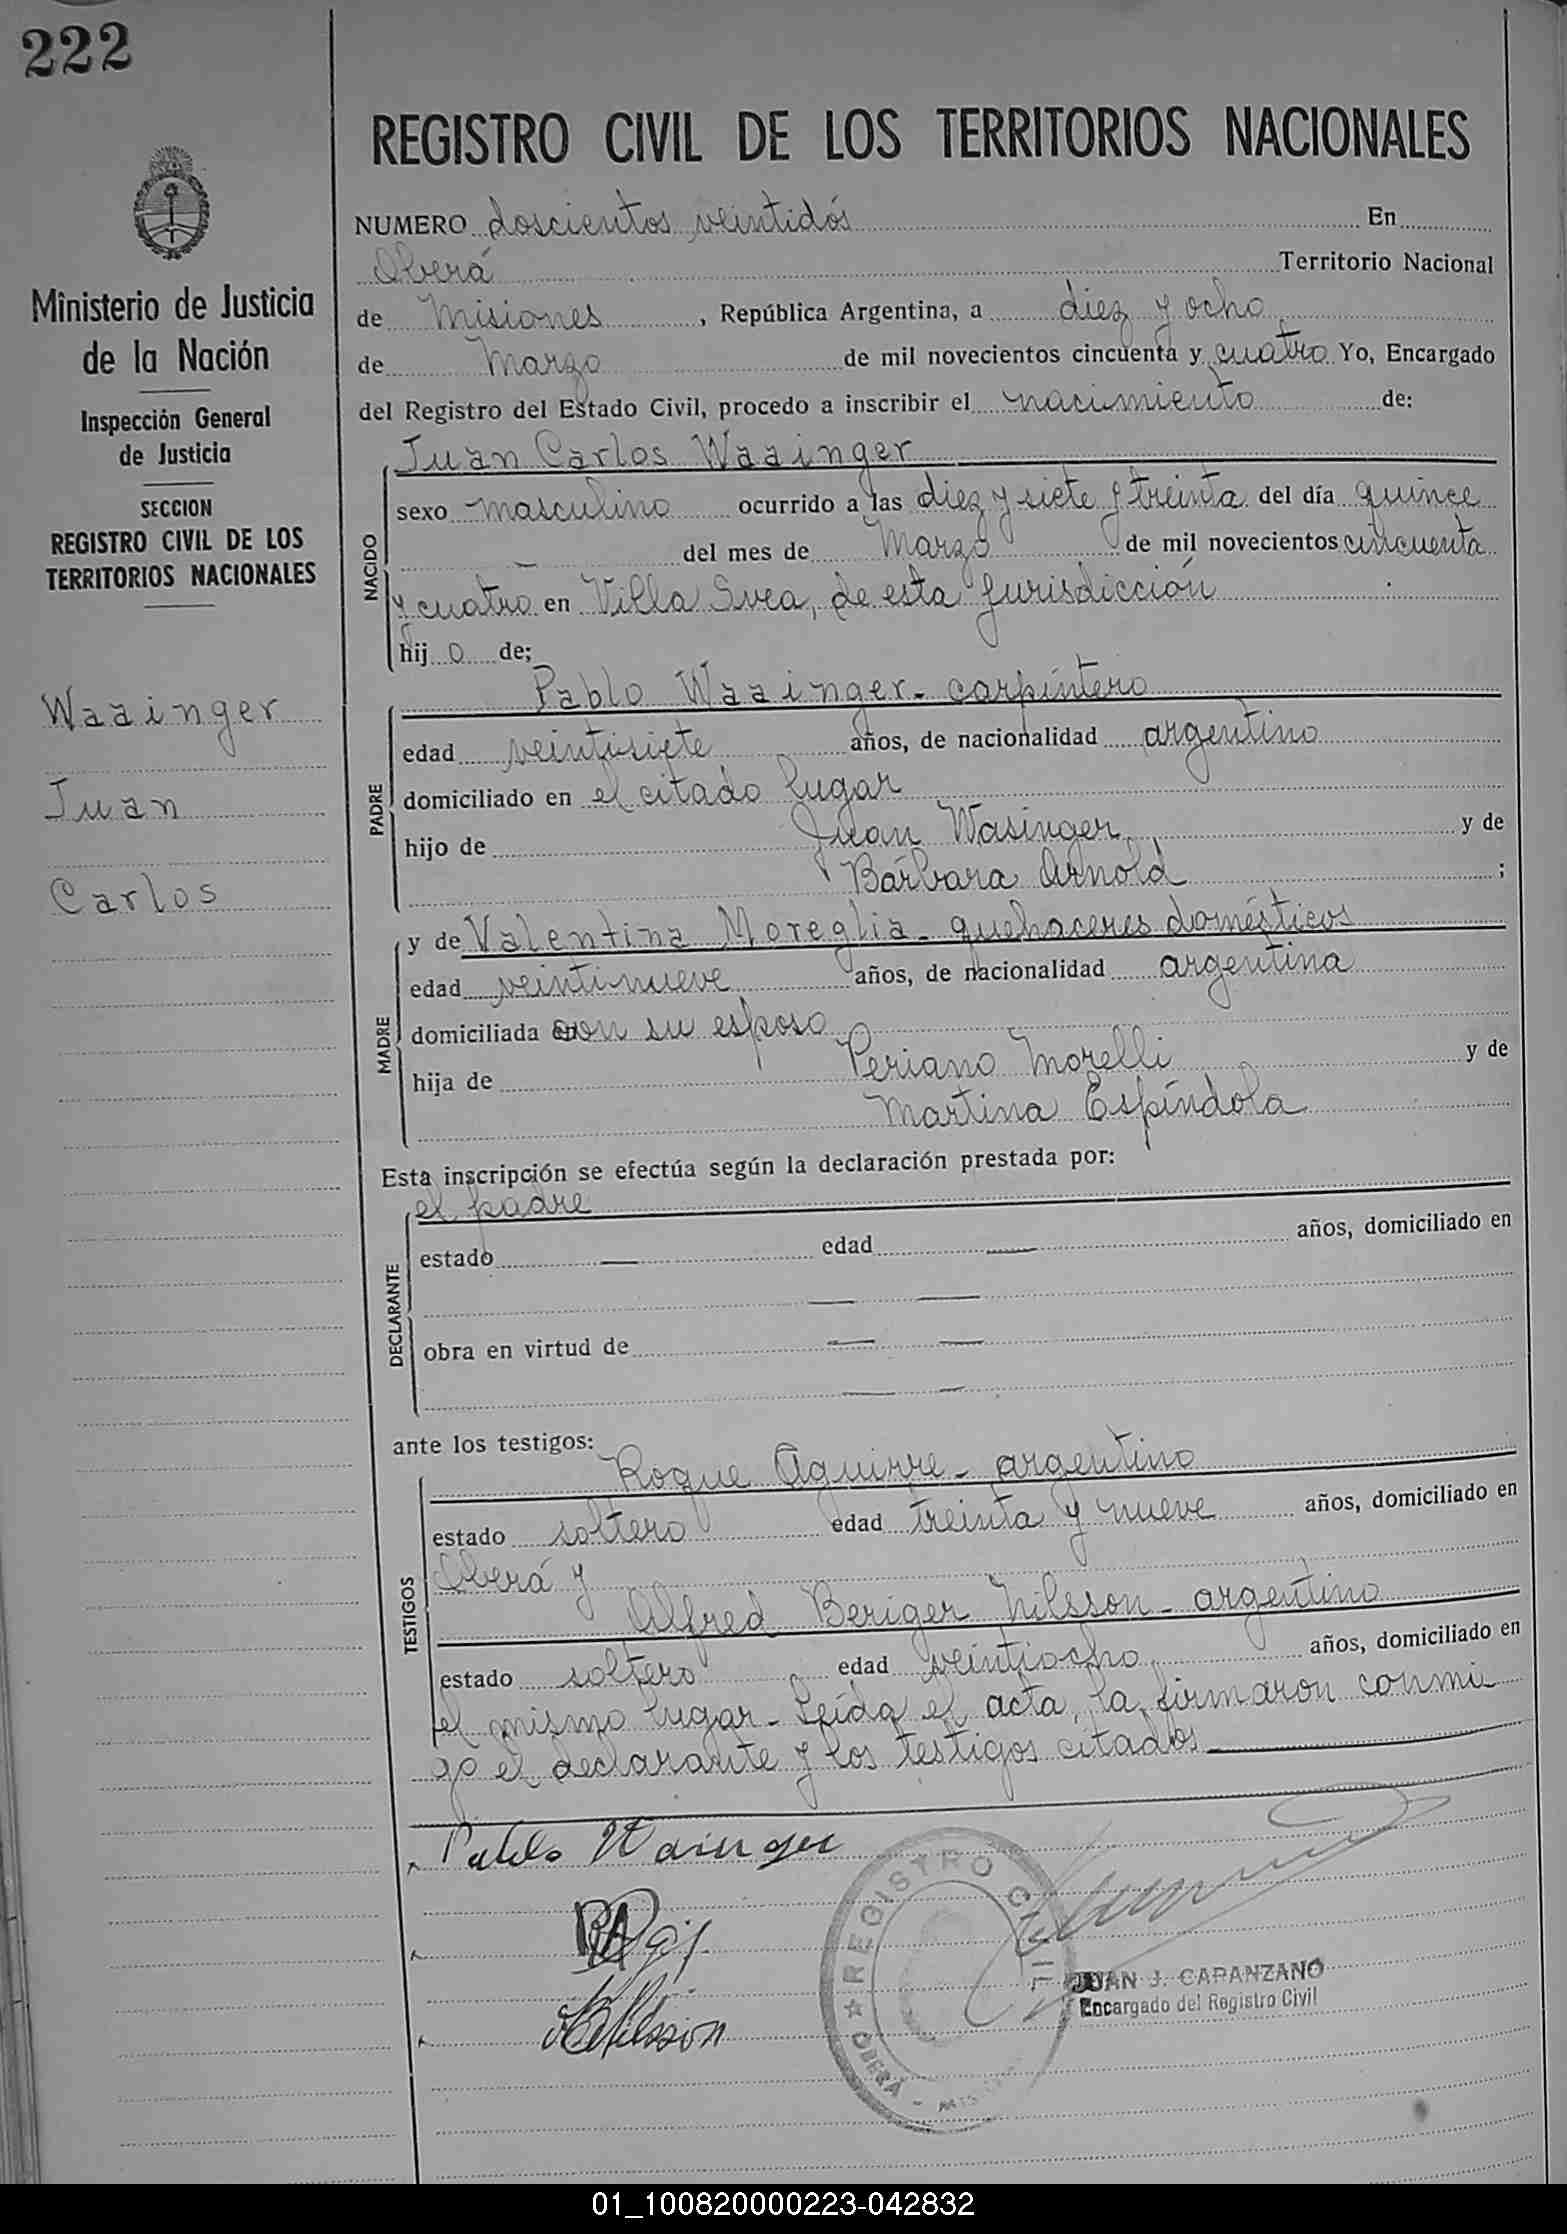 222
REGISTRO CIVIL DE LOS TERRITORIOS NACIONALES
Ministerio de Justicia
de la Nación
Inspección General
de Justicia
SECCION
REGISTRO CIVIL DE LOS
TERRITORIOS NACIONALES
Waainger
Juan
Carlos
NUMERO doscientos veintidós En
Oberá Territorio Nacional
de Misiones, República Argentina, a diez y ocho
de Marzo de mil novecientos cincuenta y cuatro Yo, Encargado
del Registro del Estado Civil, procedo a inscribir el nacimiento de:
Juan Carlos Waainger
NACIDO
sexo masculino ocurrido a las diez y siete y treinta del día quince
del mes de Marzo de mil novecientos cincuenta
y cuatro en Villa Svea, de esta jurisdicción
hij o de;
Pablo Waainger - carpintero
PADRE
edad veintisiete años, de nacionalidad argentino
domiciliado en el citado lugar
hijo de Juan Wasinger y de
Bárbara Arnold ;
y de Valentina Moreglia - quehaceres domésticos
MADRE
edad veintinueve años, de nacionalidad argentina
domiciliada con su esposo
hija de Periano Morelli y de
Martina Espíndola
Esta inscripción se efectúa según la declaración prestada por:
el padre
DECLARANTE
estado — edad — años, domiciliado en
— —
obra en virtud de — —
— —
ante los testigos:
Roque Aguirre - argentino
TESTIGOS
estado soltero edad treinta y nueve años, domiciliado en
Oberá y
Alfred Beriger Nilsson - argentino
estado soltero edad veintiocho años, domiciliado en
el mismo lugar - Leída el acta, la firmaron conmi
go el declarante y los testigos citados
Pablo Wasinger
REGISTRO CIVIL
OBERÁ
JUAN J. CAPANZANO
Encargado del Registro Civil
01_100820000223-042832